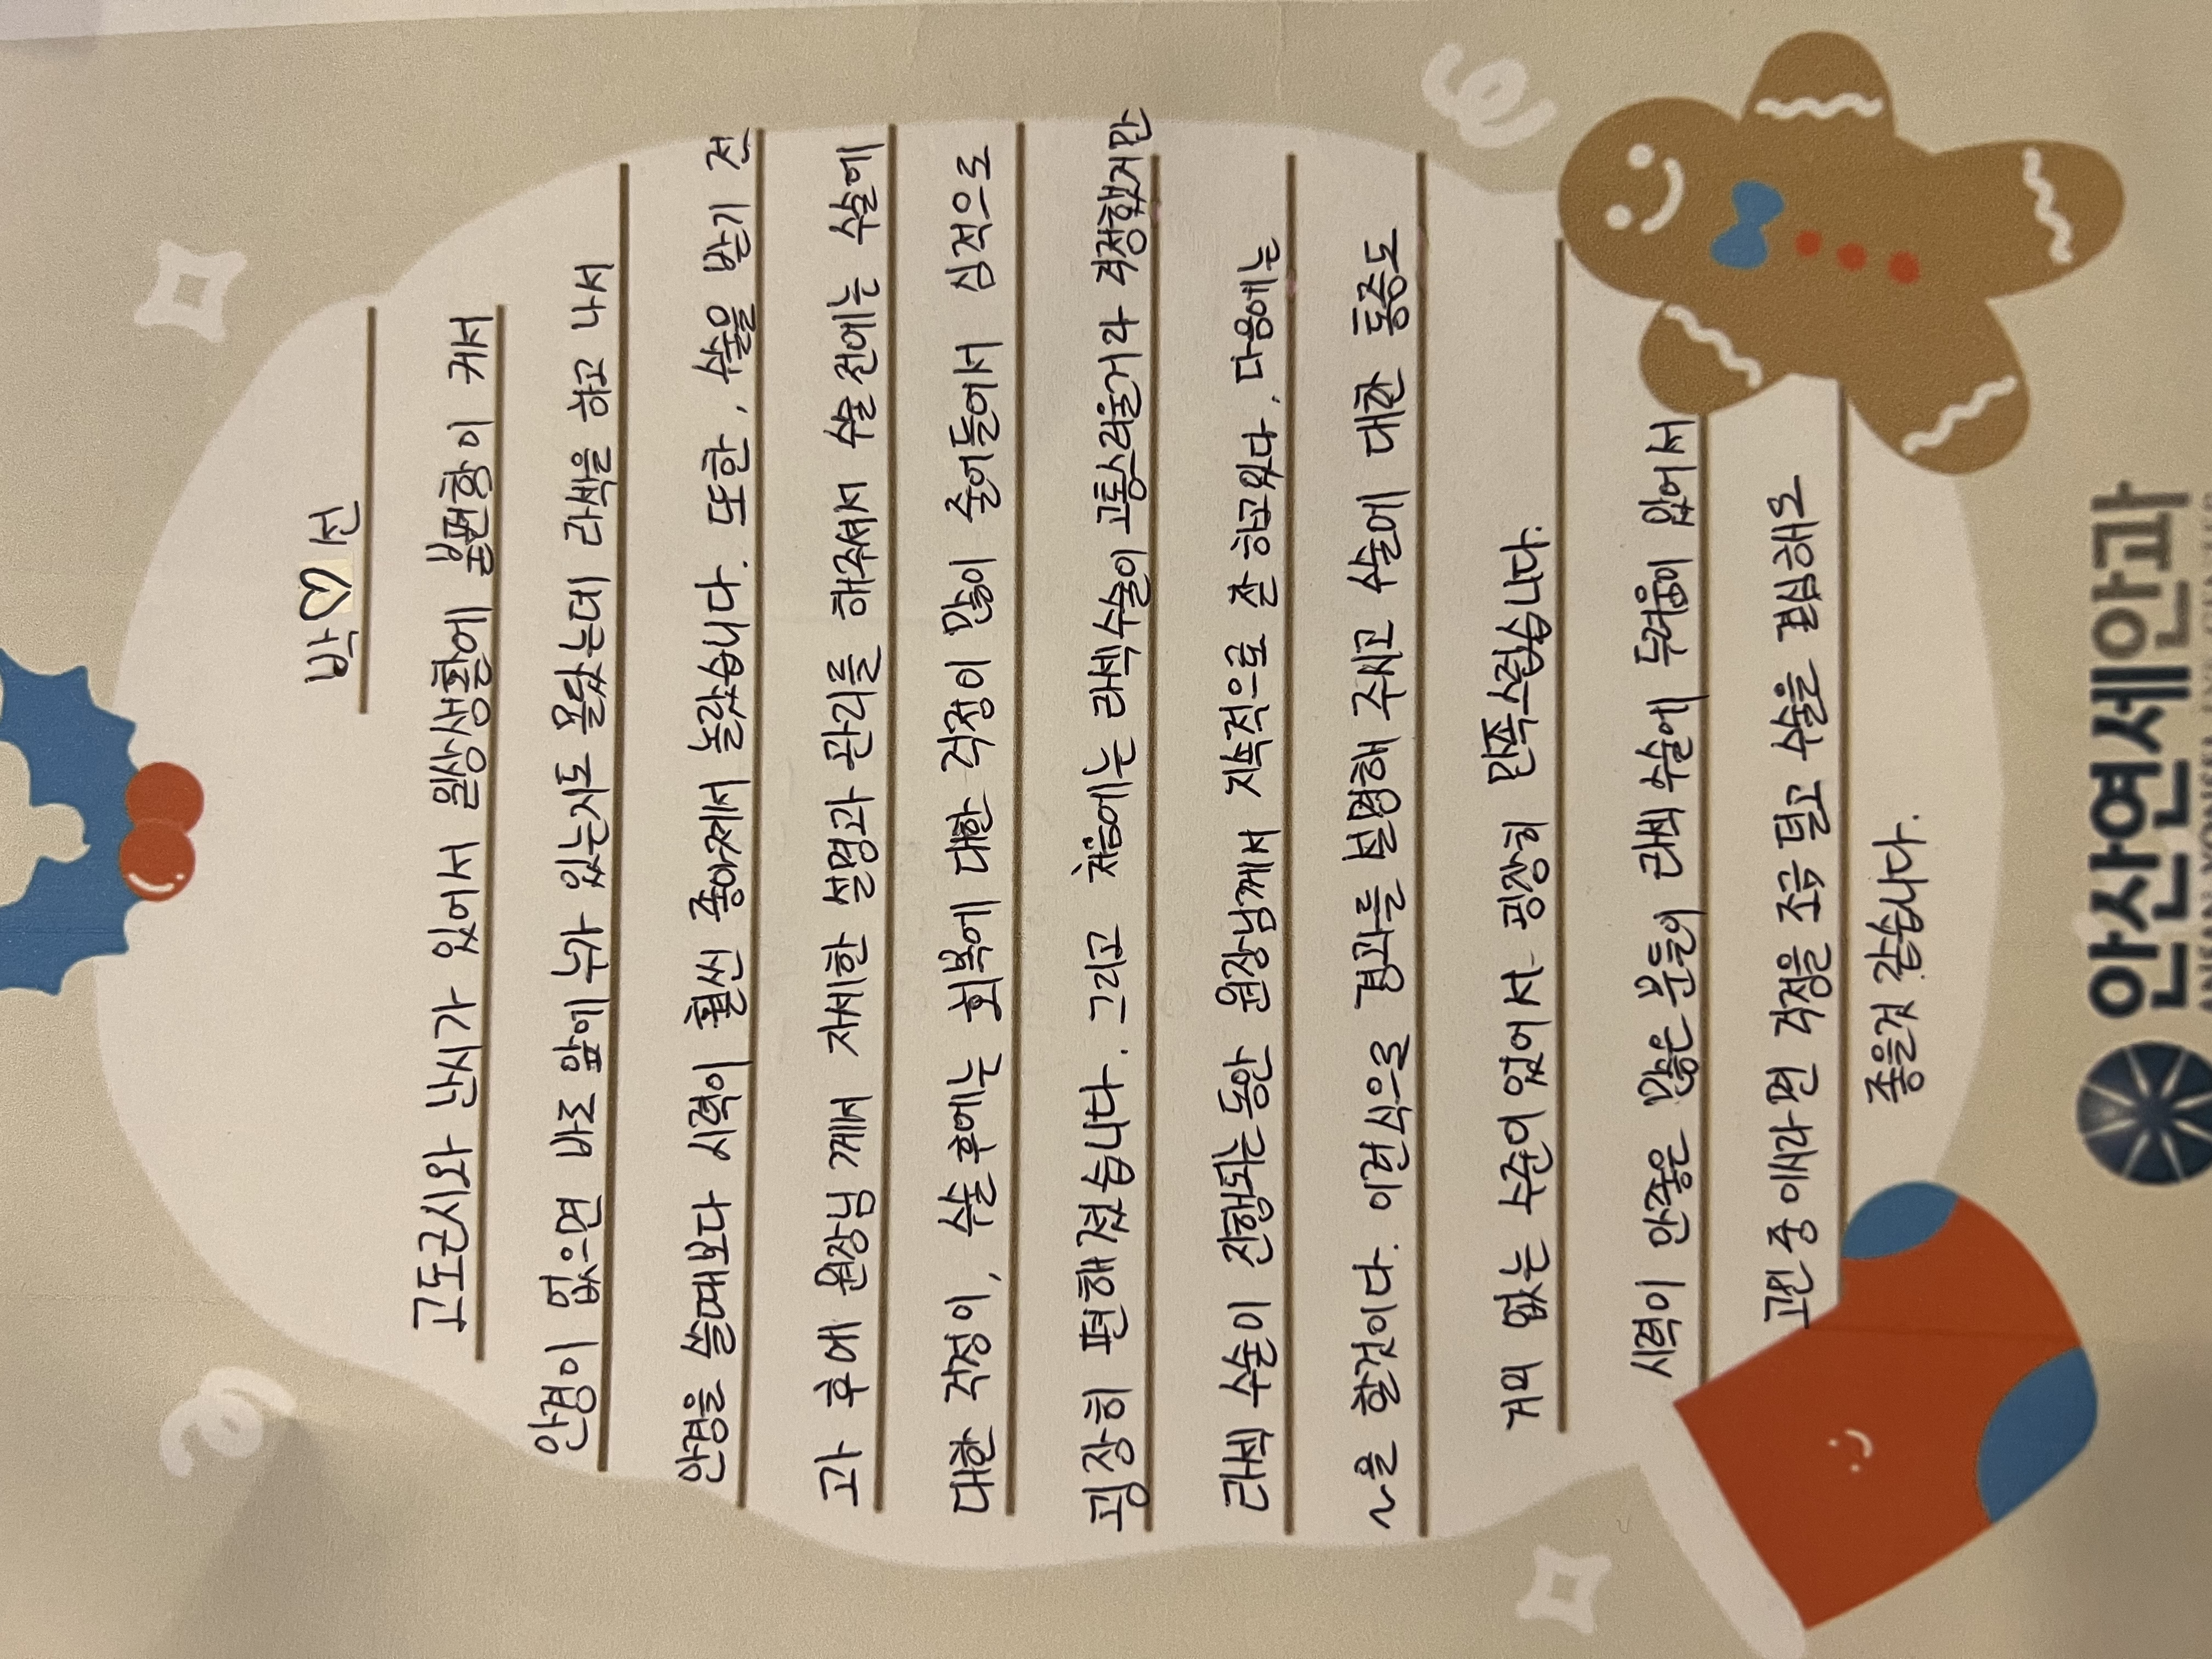 박♡선
고도근시와 난시가 있어서 일상생활에 불편함이 커서
안경이 없으면 바로 앞에 누가 있는지도 몰랐는데 라섹을 하고 나서
안경을 쓸때보다 시력이 훨씬 좋아져서 놀랐습니다. 또한, 수술을 받기 전
과 후에 원장님 께서 자세한 설명과 관리를 해주셔서 수술 전에는 수술에
대한 걱정이, 수술 후에는 회복에 대한 걱정이 많이 줄어들어서 심적으로
굉장히 편해졌습니다. 그리고 처음에는 라섹수술이 고통스러울거라 걱정했지만
라섹 수술이 진행되는 동안 원장님께서 지속적으로 잔 하고있다. 다음에는
~을 할것이다. 이런식으로 경과를 설명해 주시고 수술에 대한 통증도
거의 없는 수준이었어서 굉장히 만족스럽습니다.
시력이 안좋은 많은 분들이 라섹 수술에 두려움이 있어서
고민 중이시라면 걱정을 조금 덜고 수술을 결심해도
좋을것 같습니다.
안산연세안과